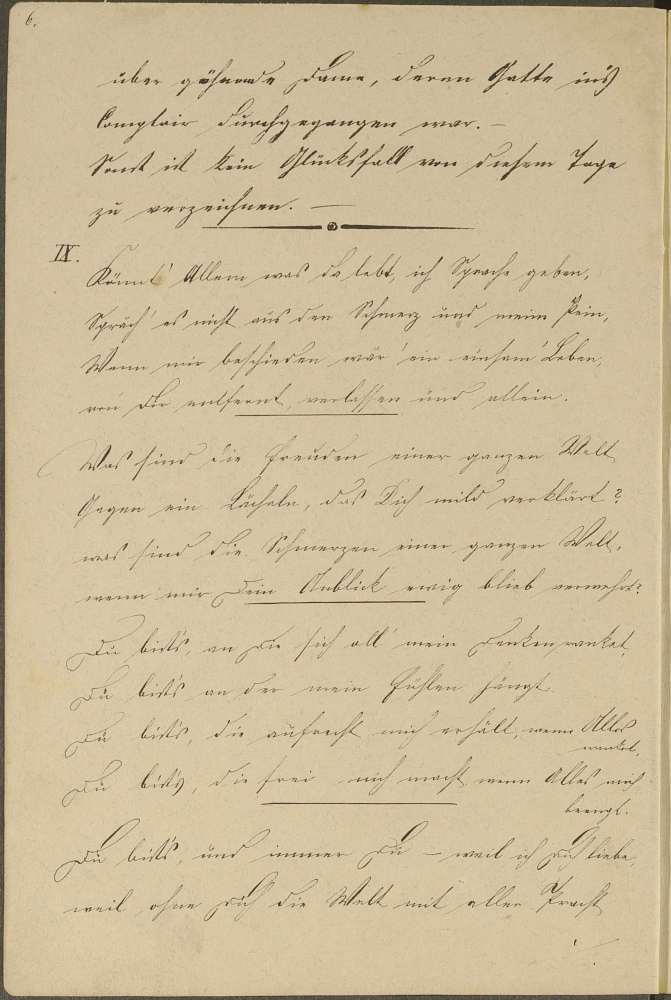 6.
über gähnende Dame, deren Gatte in's
Comptoir durchgegangen war. –
Sonst ist kein Glücksfall von diesem Tage
zu verzeichnen. —
IX.
Könnt' Allem was da lebt, ich Sprache geben,
Spräch' es nicht aus den Schmerz und meine Pein,
Wenn mir beschieden wär' ein einsam' Leben,
von Dir entfernt, verlassen und allein.
Was sind die Freuden einer ganzen Welt
Gegen ein Lächeln, das Dich mild verklärt?
was sind die Schmerzen einer ganzen Welt,
wenn mir Dein Anblick ewig blieb verwehrt?
Du bist's, an Die sich all' mein Denken ranket,
Du bist's an der mein Fühlen hängt.
Du bist's, die aufrecht mich erhält, wenn Alles
wanket,
Du bist's, die frei mich macht wenn Alles mich
beengt.
Du bist's, und immer Du – weil ich Dich liebe,
weil ohne Dich die Welt mit aller Pracht